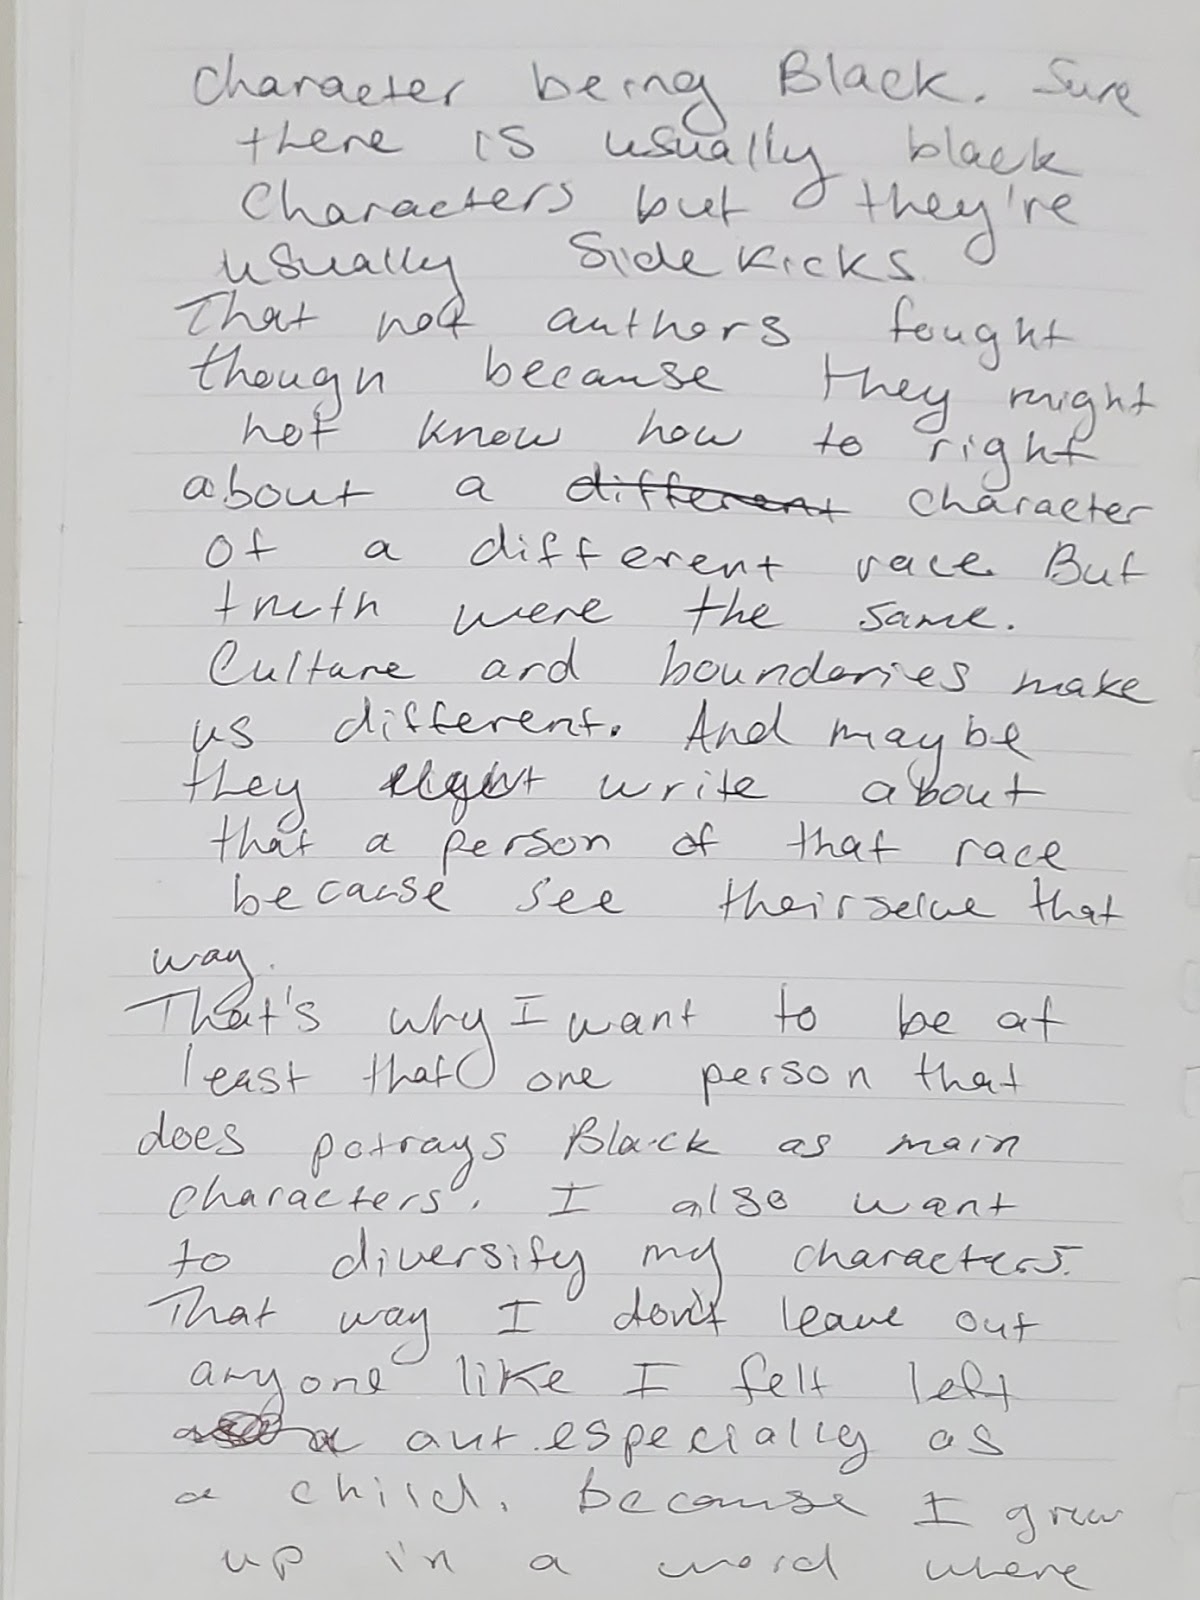 character being Black. Sure
there is usually black
Characters but they're
usually Side Kicks
That not authors fought
though because they might
not know how to right
about a different character
of a different race But
truth were the same.
Culture and boundaries make
us different. And maybe
they write about
that a person of that race
because see theirselve that
way.
That's why I want to be at
least that one person that
does potrays Black as main
characters. I also want
to diversify my characters.
That way I don't leave out
anyone like I felt left
out especially as
a child. Because I grew
up in a word where